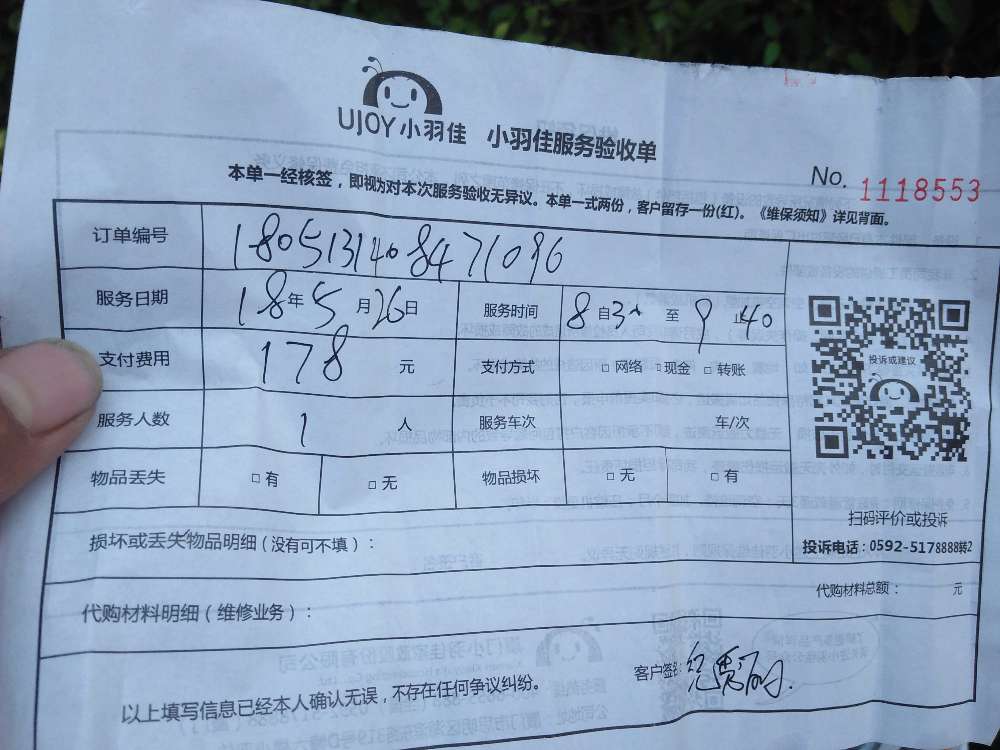 UJOY小羽佳 小羽佳服务验收单
No. 1118553
本单一经核签，即视为对本次服务验收无异议。本单一式两份，客户留存一份(红)。《维保须知》详见背面。
订单编号 1805131408471096
服务日期 18年5月26日 服务时间 8自30至9止40
支付费用 178元 支付方式 □网络 □现金 □转账
投诉或建议
服务人数 1人 服务车次 车/次
物品丢失 □有 □无 物品损坏 □无 □有
扫码评价或投诉
损坏或丢失物品明细（没有可不填）：
投诉电话：0592-5178888转2
代购材料明细（维修业务）：
代购材料总额： 元
以上填写信息已经本人确认无误，不存在任何争议纠纷。
客户签: